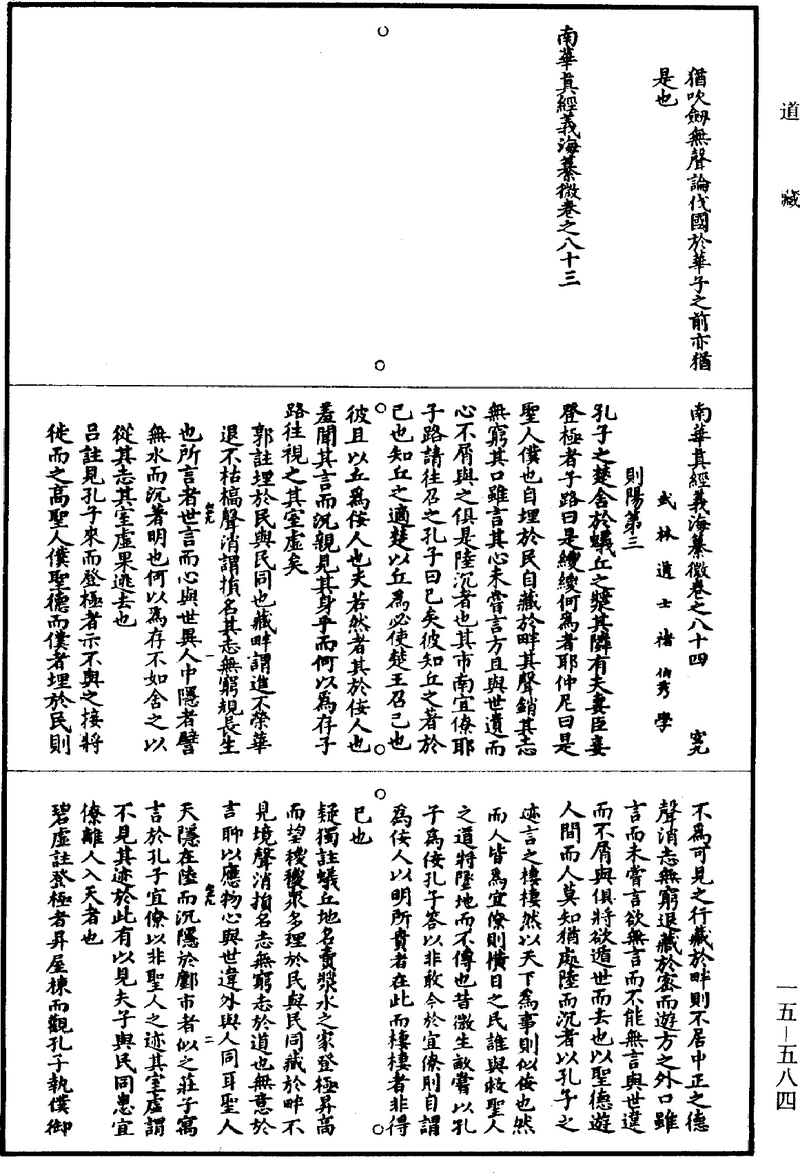 道藏
猶吹劒無聲論伐國於華子之前亦猶
是也
南華真經義海纂微卷之八十三
南華真經義海纂微卷之八十四 寃九
武林道士褚伯秀學
則陽第三
孔子之楚舍於蟻丘之漿其隣有夫妻臣妾
登極者子路曰是稯稯何為者耶仲尼曰是
聖人僕也自埋於民自藏於畔其聲銷其志
無窮其口雖言其心未嘗言方且與世違而
心不屑與之俱是陸沉者也其市南宜僚耶
子路請往召之孔子曰已矣彼知丘之著於
己也知丘之適楚以丘為必使楚王召己也
彼且以丘為佞人也夫若然者其於佞人也
羞聞其言而沉親見其身乎而何以為存子
路往視之其室虛矣
郭註埋於民與民同也藏畔謂進不榮華
退不枯槁聲消謂損名其志無窮規長生
也所言者世言而心與世異人中隱者譬
無水而沉著明也何以為存不如舍之以
從其志其室虛果逃去也
呂註見孔子來而登極者示不與之接將
徙而之高聖人僕聖德而僕者埋於民則
不為可見之行藏於畔則不居中正之德
聲消志無窮退藏於密而遊方之外口雖
言而未嘗言欲無言而不能無言與世違
而不屑與俱將欲遁世而去也以聖德遊
人間而人莫知猶處陸而沉者以孔子之
迹言之棲棲然以天下為事則似佞也然
而人皆為宜僚則橫目之民誰與救聖人
之道將墜地而不傳也昔微生畝嘗以孔
子為佞孔子答以非敢今於宜僚則自謂
為佞人以明所貴者在此而棲棲者非得
已也
疑獨註蟻丘地名賣漿水之家登極昇高
而望稯稯聚多埋於民與民同藏於畔不
見境聲消損名志無窮志於道也無意於
言聊以應物心與世違外與人同耳聖人
天隱在陸而沉隱於鄽市者似之莊子寓
言於孔子宜僚以非聖人之迹其室虛謂
不見其迹於此有以見夫子與民同患宜
僚離人入天者也
碧虛註登極者昇屋棟而觀孔子執僕御
寃九 一
寃九 二
一五—五八四